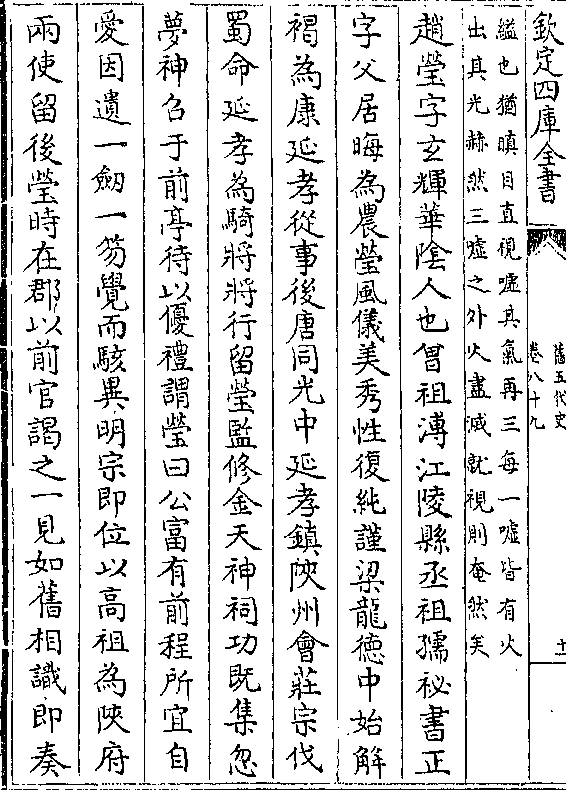 欽定四庫全書
舊五代史
卷八十九
十一
縊也猶瞋目直視噓其氣再三每一噓皆有火
出其光赫然三噓之外火盡滅就視則奄然矣
趙瑩字玄輝華陰人也曾祖溥江陵縣丞祖孺祕書正
字父居晦為農瑩風儀美秀性復純謹梁龍德中始解
褐為康延孝從事後唐同光中延孝鎮陝州會莊宗伐
蜀命延孝為騎將將行留瑩監修金天神祠功既集忽
夢神召于前亭待以優禮謂瑩曰公富有前程所宜自
愛因遺一劒一笏覺而駭異明宗即位以高祖為陝府
兩使留後瑩時在郡以前官謁之一見如舊相識即奏